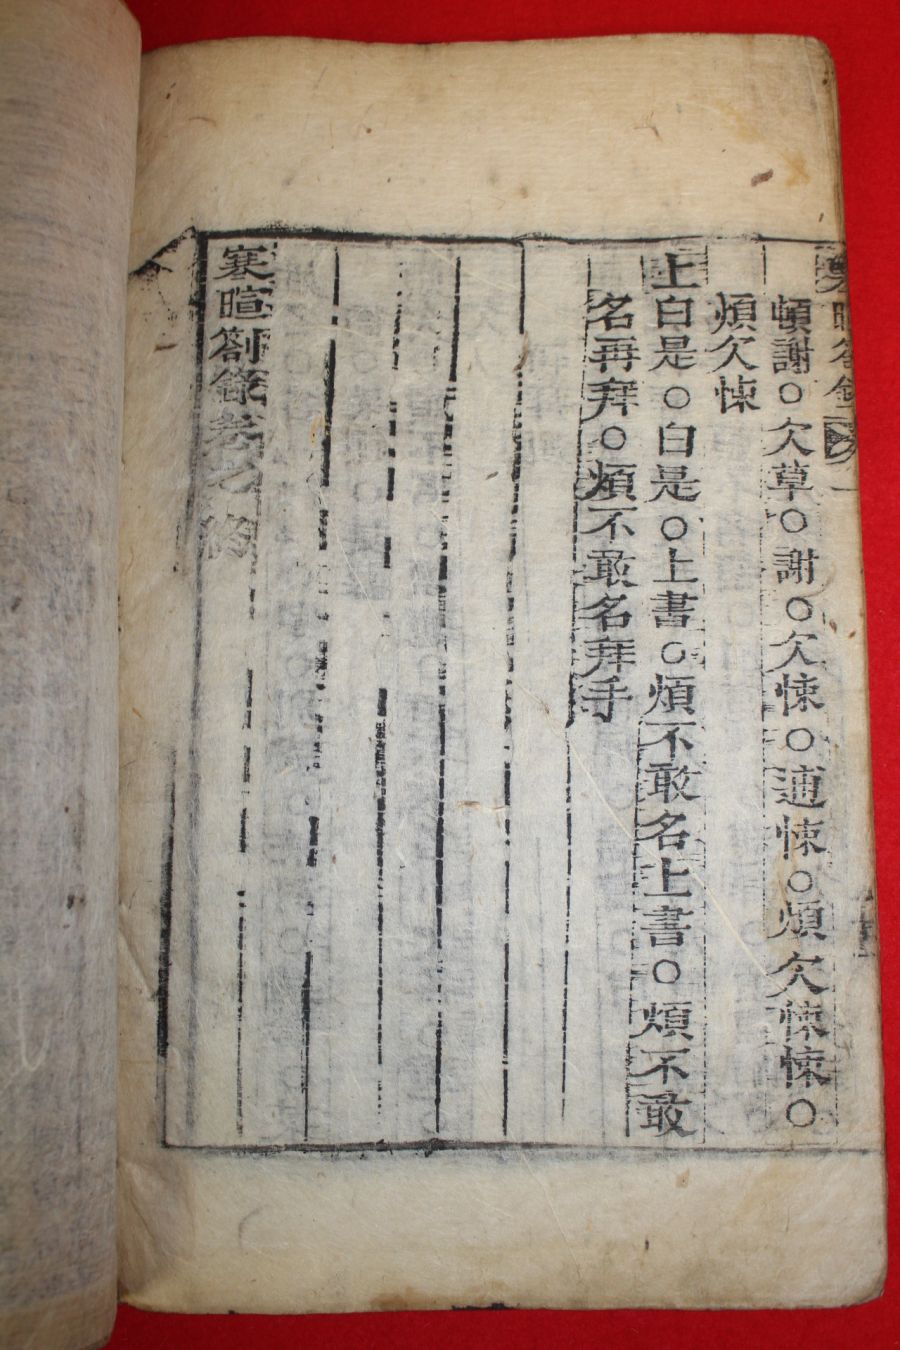 頓謝○欠草○謝○欠悚○逋悚○煩欠悚悚○
煩欠悚
上白是○白是○上書○煩不敢名上書○煩不敢
名再拜○煩不敢名拜手
寒暄劄錄卷之終